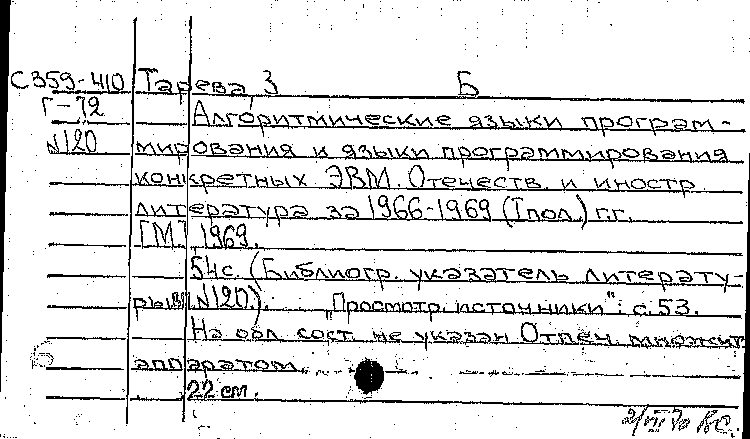 С359-410 Тарева, З Б
Г-72 Алгоритмические языки програм-
№120 мирования и языки программирования
конкретных ЭВМ. Отечеств. и иностр.
литература за 1966-1969 (I пол.) г.г.
[М.] 1969.
54с. (Библиогр. указатель литерату-
ры №120). "Просмотр. источники": с.53.
На обл. сост. не указан Отпеч. множит.
аппаратом.
22 см.